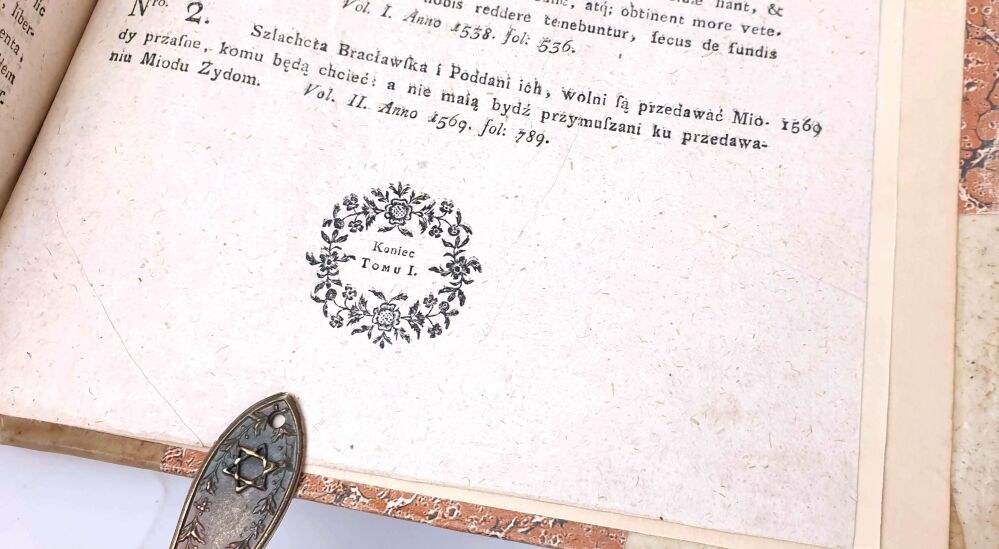 lic
liber-
hant, &
atq; obtinent more vete.
nobis reddere tenebuntur, ſecus de fundis
Vol. I. Anno 1538. fol: 536.
Nro. 2.
Szlachcta Bracławſka i Poddani ich, wolni ſą przedawać Mio- 1569
dy przaſne, komu będą chcieć; a nie maią bydź przymuſzani ku przedawa-
niu Miodu Żydom. Vol. II. Anno 1569. fol: 789.
Koniec
TOMU I.